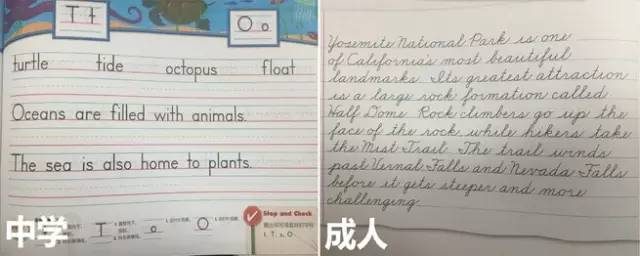 T t
O o
turtle tide octopus float
Oceans are filled with animals.
The sea is also home to plants.
Stop and Check
T, t, O,
中学
Yosemite National Park is one
of California's most beautiful
landmarks. Its greatest attraction
is a large rock formation called
Half Dome. Rock climbers go up the
face of the rock while hikers take
the Mist Trail. The trail winds
past Vernal Falls and Nevada Falls
before it gets steeper and more
challenging.
成人